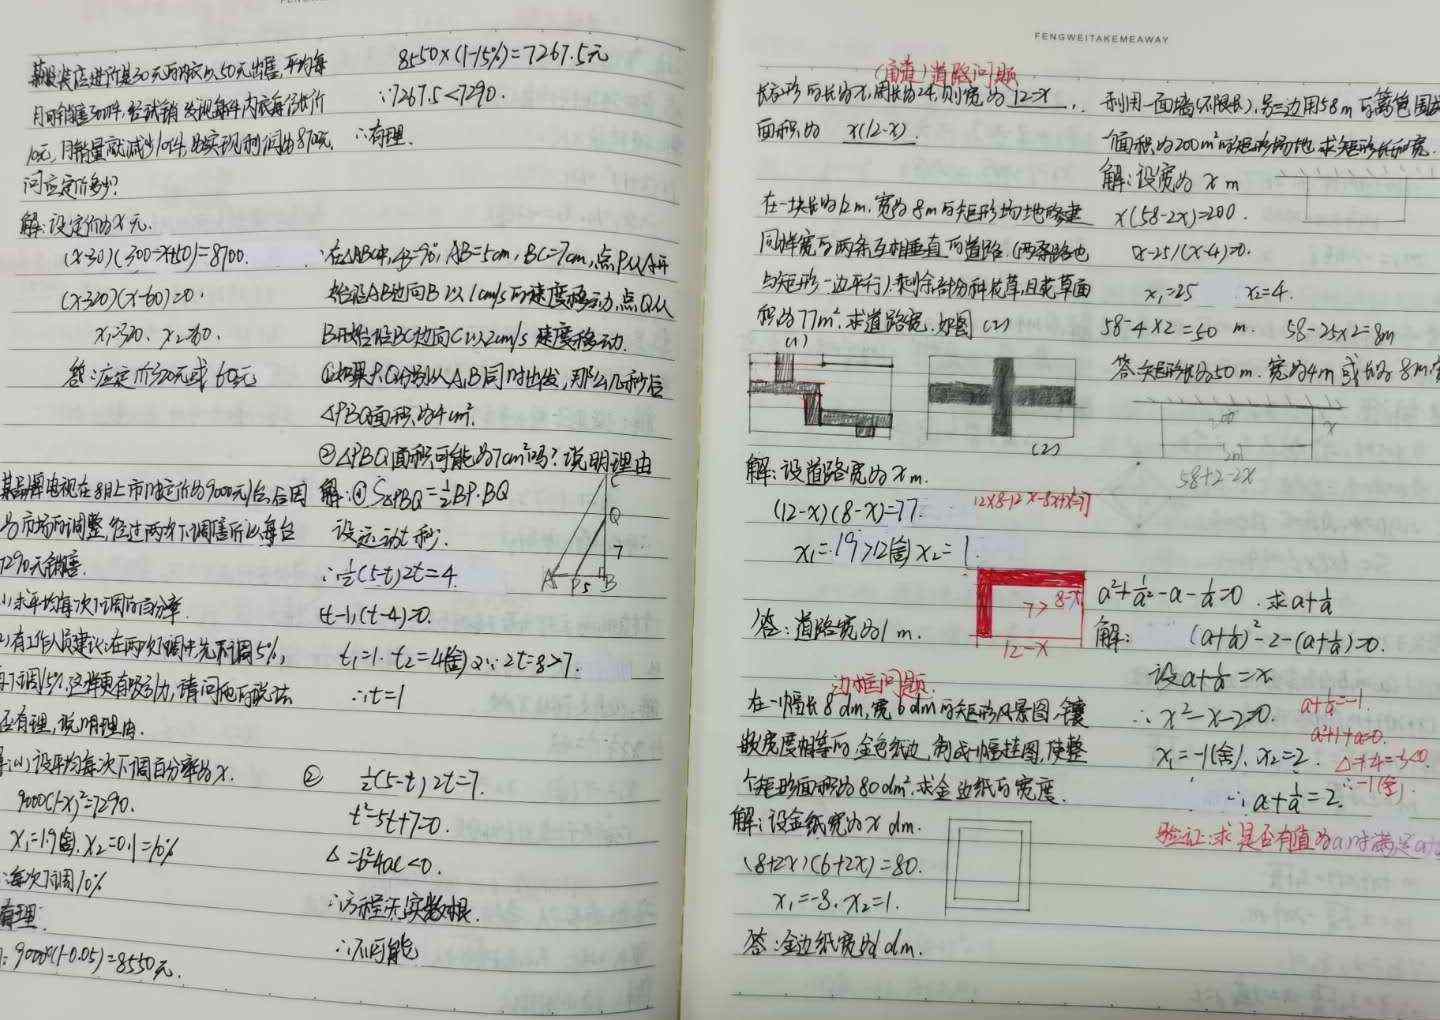 某服装店进价是30元的内衣以50元出售,平均每
月可销售300件,经试销发现每件内衣每涨价
10元,月销量就减少10件,为实现利润为8700元,
问应定价多少?
解:设定价为x元.
(x-30)(300-x+50)=8700.
(x-320)(x-60)=0.
x₁=320, x₂=60.
答:应定价320元或60元
某品牌电视在8月上市时定价为9000元/台,后因
为市场的调整,经过两次下调售价以每台
7290元销售.
(1)求平均每次下调的百分率.
(2)有工作人员建议:在两次下调中先下调5%,
再下调15%,这样更有吸引力,请问他的说法
否有理,说明理由.
(1)设平均每次下调百分率为x.
9000(1-x)²=7290.
x₁=1.9(舍),x₂=0.1=10%
∴每次下调10%
有理.
9000×(1-0.05)=8550元.
8550×(1-15%)=7267.5元
∵7267.5<7290.
∴有理.
在△ABC中,∠B=90°,AB=5cm,BC=7cm,点P从A开
始沿AB边向B以1cm/s的速度移动,点Q从
B开始沿BC边向C以2cm/s速度移动.
①如果P,Q分别从A,B同时出发,那么几秒后
△PBQ面积为4cm².
②△PBQ面积可能为7cm²吗?说明理由
解:① S△PBQ=½BP·BQ
设运动t秒.
∴½(5-t)2t=4.
(t-1)(t-4)=0.
t₁=1. t₂=4(舍)∵2t=8>7.
∴t=1
C
Q
7
A P 5 B
② ½(5-t)2t=7.
t²-5t+7=0.
△=b²-4ac<0.
∴方程无实数根.
∴不可能
FENGWEITAKEMEAWAY
(甬道)道路问题
长方形的长为x,周长为24,则宽为12-x,
面积为 x(12-x).
在一块长为12m,宽为8m的矩形场地修建
同样宽的两条互相垂直的道路.(两条路也
与矩形一边平行)剩余部分种花草,且花草面
积为77m²,求道路宽.如图(2)
(1)
(2)
解:设道路宽为xm.
(12-x)(8-x)=77.
12×8-12x-8x+x²=77
x₁=19>12(舍)x₂=1.
77 8-x
12-x
答:道路宽为1m.
边框问题.
在一幅长8dm,宽6dm的矩形风景图,镶
嵌宽度相等的金色纸边,制成一幅挂图,使整
个矩形面积为80dm²,求金边纸的宽度.
解:设金纸宽为x dm.
(8+2x)(6+2x)=80.
x₁=-8,x₂=1.
答:金边纸宽为1dm.
利用一面墙(不限长),另三边用58m的篱笆围成
个面积为200m²的矩形场地,求矩形长和宽.
解:设宽为xm
x(58-2x)=200.
(x-25)(x-4)=0.
x₁=25 x₂=4.
58-4×2=50 m. 58-25×2=8m
答:矩形长为50m.宽为4m或长为8m,宽
x
58+2-2x
a²+1/a²-a-1/a=0.求a+1/a
解: (a+1/a)²-2-(a+1/a)=0.
设a+1/a=x
∴x²-x-2=0.
x₁=-1(舍),x₂=2.
∴a+1/a=2.
a+1/a=-1.
a²+1+a=0.
△=1-4=-3<0.
∴-1(舍).
验证:求是否有值为a时满足a+